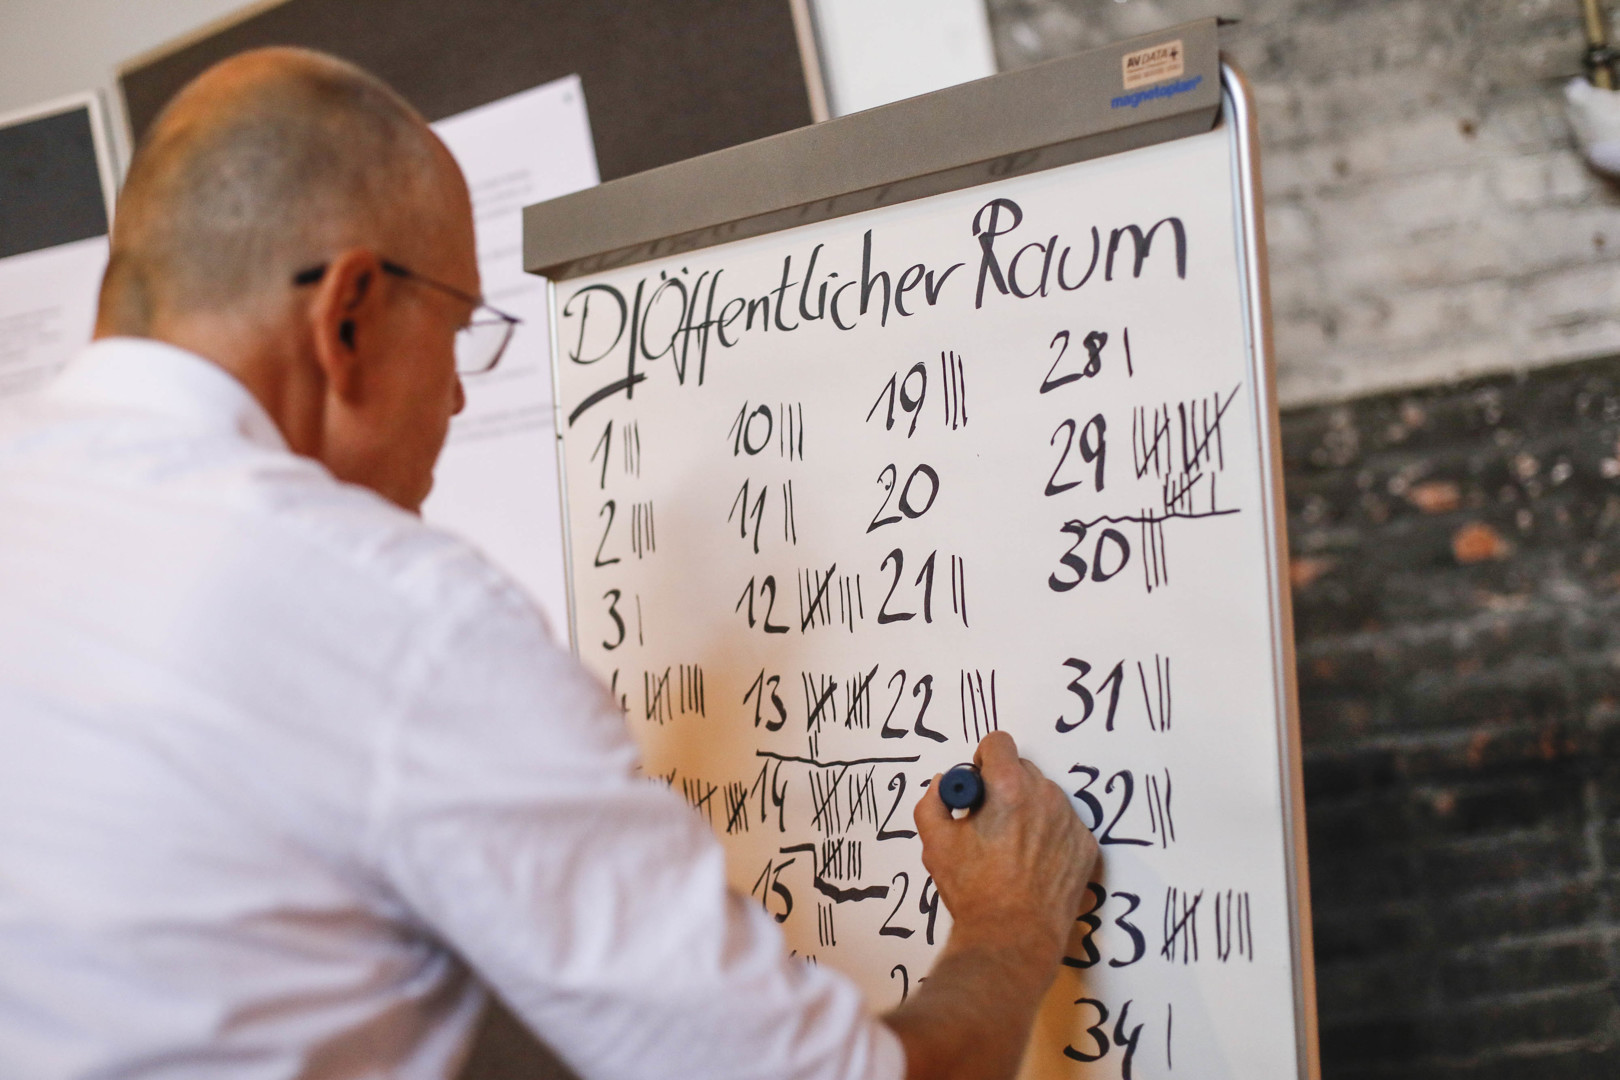 AV DATA
magnetoplan
D/Öffentlicher Raum
1 |||
2 ||||
3 |
4 卌 ||||
10 |||
11 ||
12 卌 |||
13 卌 卌 ||
14 卌 卌 卌 |||
15 |||
19 |||
20
21 ||
22 ||||
2
24
2
28 |
29 卌 卌 卌 |
30 |||
31 |||
32 |||
33 卌 ||||
34 |